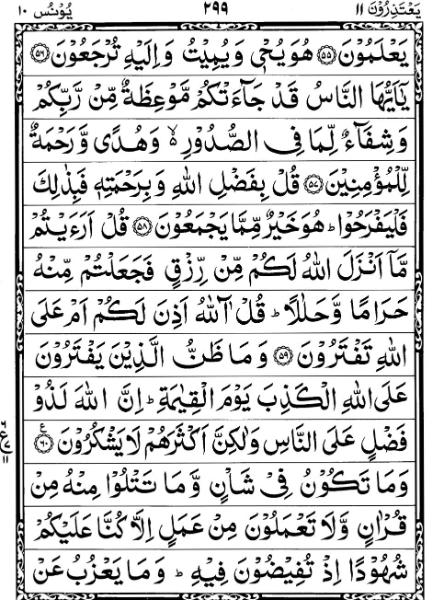 يَعْتَذِرُوْنَ ١١ ٢٩٩ يُوْنُس ١٠
يَعْلَمُوْنَ ﴿٥٥﴾ هُوَ يُحْيٖ وَيُمِيْتُ وَاِلَيْهِ تُرْجَعُوْنَ ﴿٥٦﴾
يٰۤاَيُّهَا النَّاسُ قَدْ جَآءَتْكُمْ مَّوْعِظَةٌ مِّنْ رَّبِّكُمْ
وَشِفَآءٌ لِّمَا فِى الصُّدُوْرِ ۙ۬ وَهُدًى وَّرَحْمَةٌ
لِّلْمُؤْمِنِيْنَ ﴿٥٧﴾ قُلْ بِفَضْلِ اللّٰهِ وَبِرَحْمَتِهٖ فَبِذٰلِكَ
فَلْيَفْرَحُوْا ؕ هُوَ خَيْرٌ مِّمَّا يَجْمَعُوْنَ ﴿٥٨﴾ قُلْ اَرَءَيْتُمْ
مَّاۤ اَنْزَلَ اللّٰهُ لَكُمْ مِّنْ رِّزْقٍ فَجَعَلْتُمْ مِّنْهُ
حَرَامًا وَّحَلٰلًا ؕ قُلْ آٰللّٰهُ اَذِنَ لَكُمْ اَمْ عَلَى
اللّٰهِ تَفْتَرُوْنَ ﴿٥٩﴾ وَمَا ظَنُّ الَّذِيْنَ يَفْتَرُوْنَ
عَلَى اللّٰهِ الْكَذِبَ يَوْمَ الْقِيٰمَةِ ؕ اِنَّ اللّٰهَ لَذُوْ
فَضْلٍ عَلَى النَّاسِ وَلٰكِنَّ اَكْثَرَهُمْ لَا يَشْكُرُوْنَ ﴿٦٠﴾ ع
٦ ع ١١
وَمَا تَكُوْنُ فِىْ شَاْنٍ وَّمَا تَتْلُوْا مِنْهُ مِنْ
قُرْاٰنٍ وَّلَا تَعْمَلُوْنَ مِنْ عَمَلٍ اِلَّا كُنَّا عَلَيْكُمْ
شُهُوْدًا اِذْ تُفِيْضُوْنَ فِيْهِ ؕ وَمَا يَعْزُبُ عَنْ